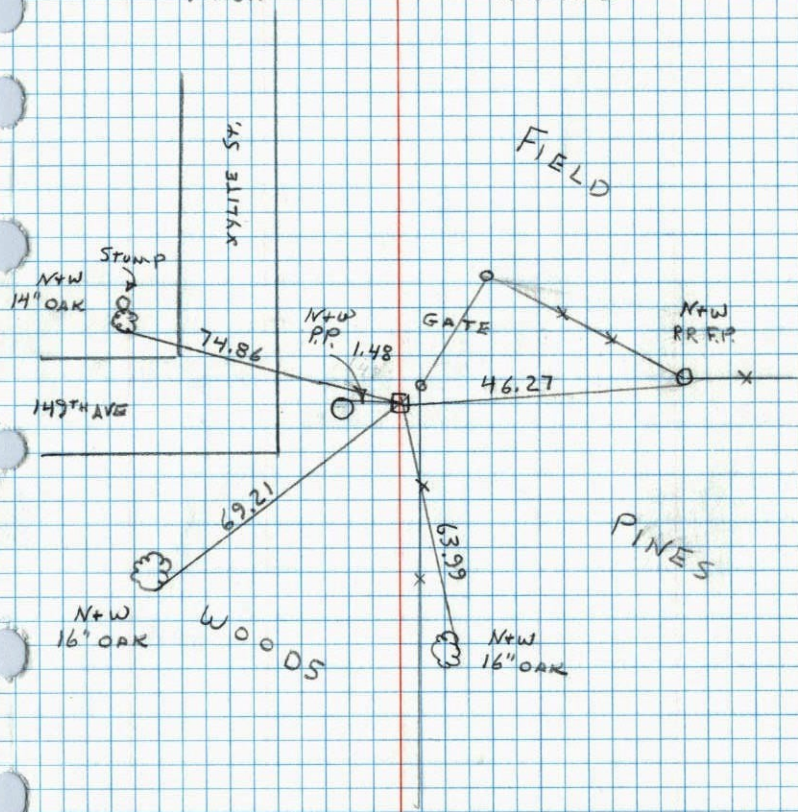 XYLITE St.
FIELD
Stump
N+W
14" OAK
74.86
N+W
P.P.
1.48
GATE
N+W
RR. F.P.
46.27
149TH AVE
69.21
63.99
PINES
N+W
16" OAK
WOODS
N+W
16" OAK